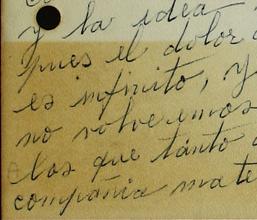 y la idea
pues el dolor
es infinito, y
no volveremos
los que tanto
compañia mate